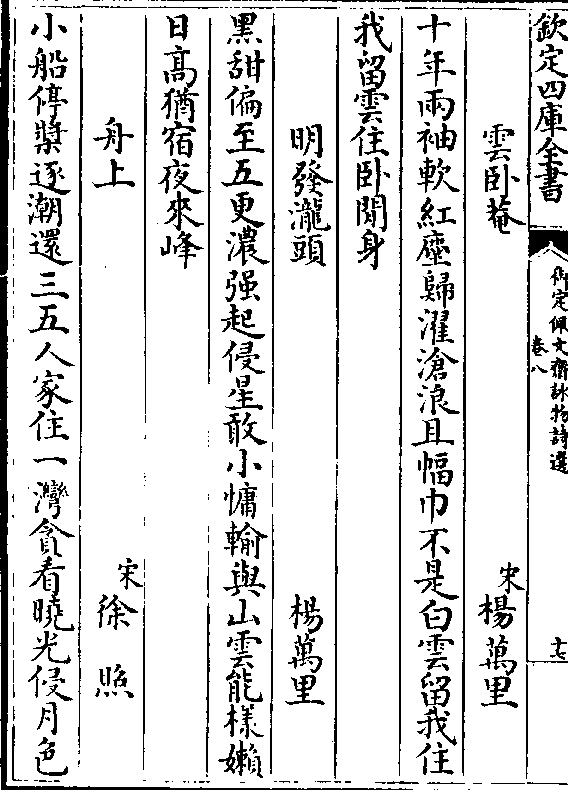 欽定四庫全書
御定佩文齋詠物詩選
卷八
十七
雲卧菴
宋楊萬里
十年兩袖軟紅塵歸濯滄浪且幅巾不是白雲留我住
我留雲住卧閒身
明發瀧頭
楊萬里
黑甜偏至五更濃强起侵星敢小慵輸與山雲能樣嬾
日髙猶宿夜來峰
舟上
宋徐照
小船停槳逐潮還三五人家住一灣貪看曉光侵月色